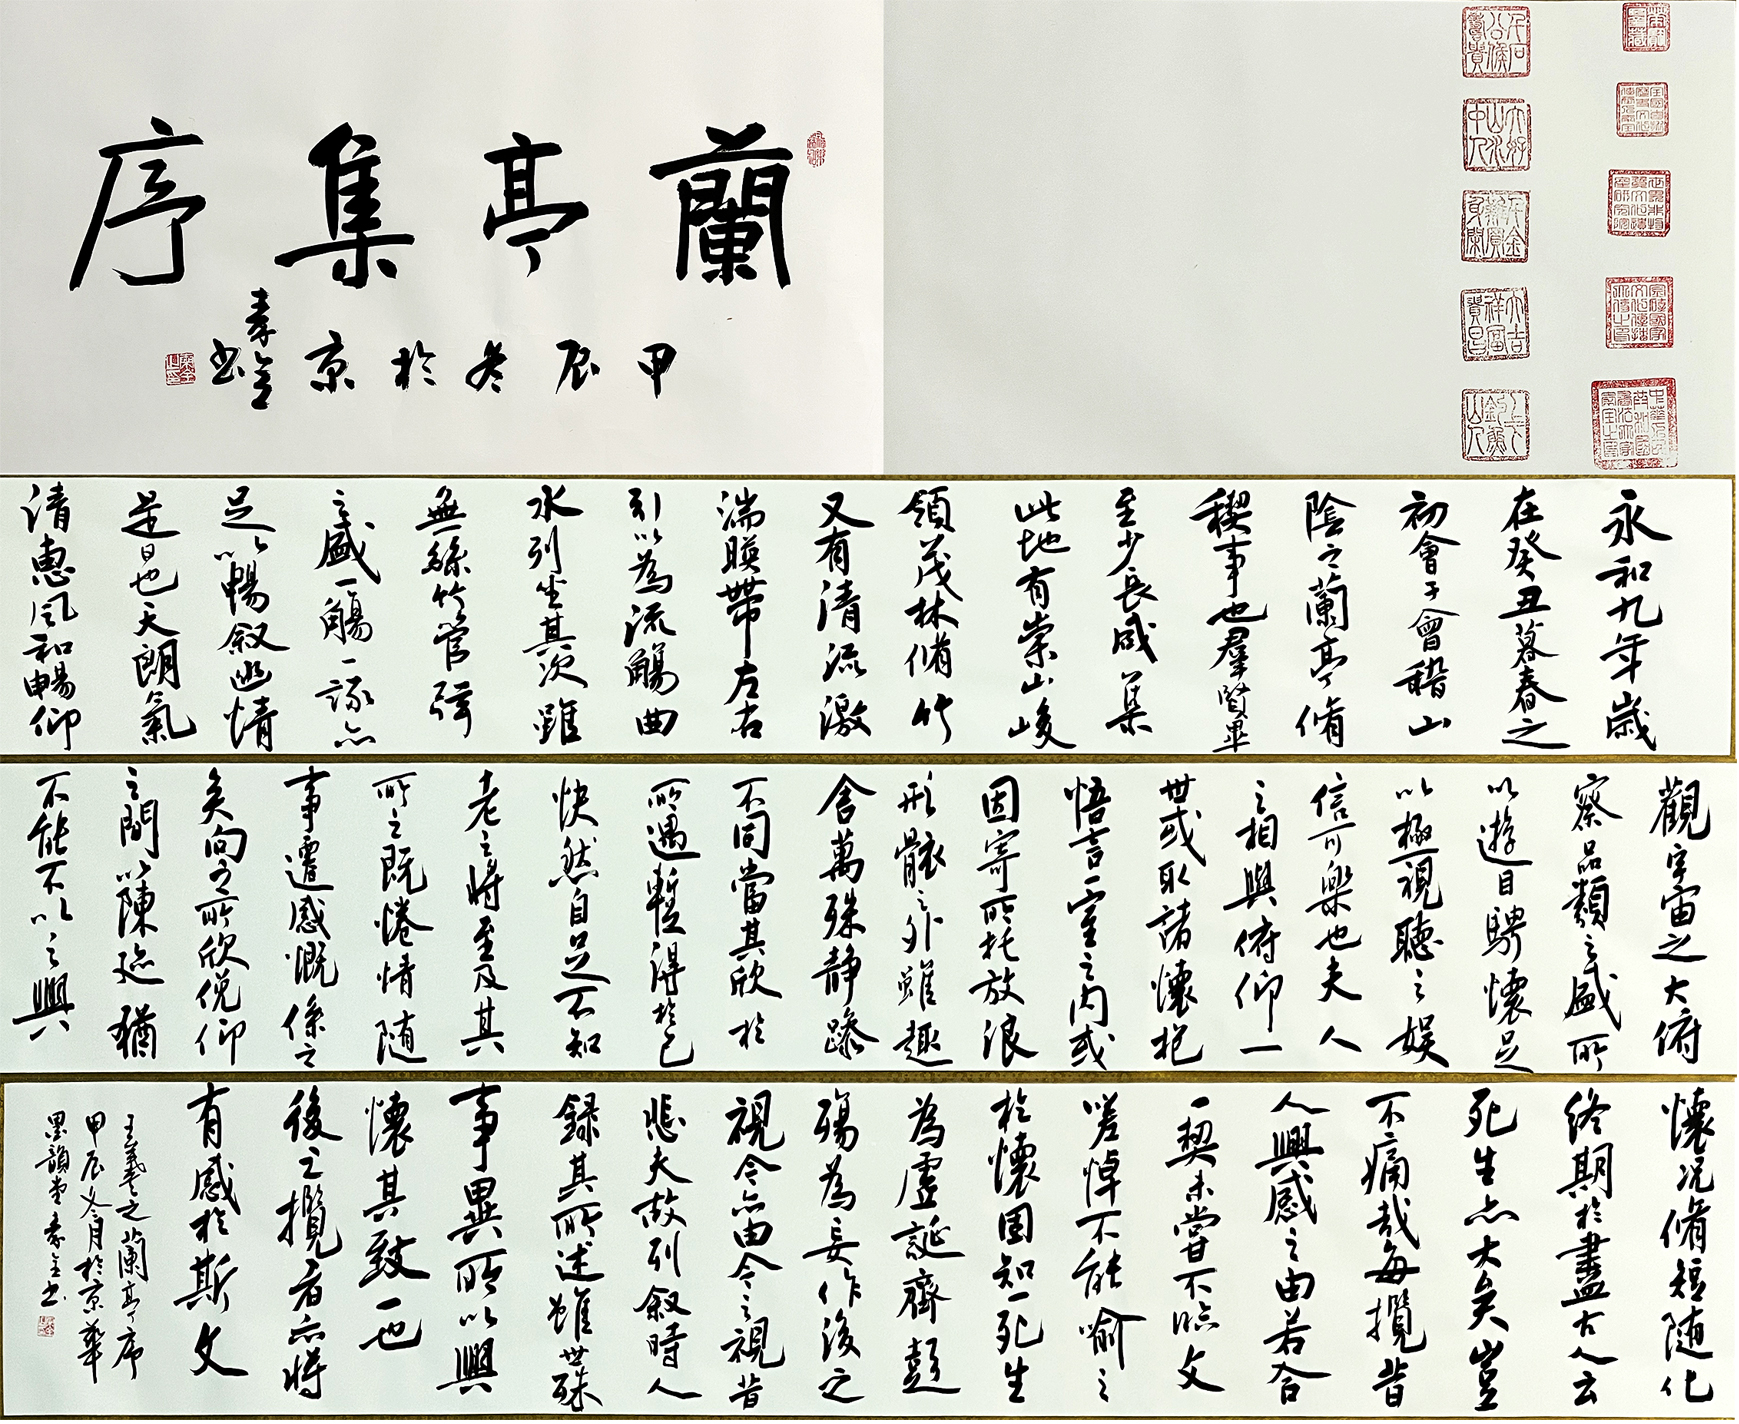 蘭亭集序
甲辰冬於京
書
永和九年歲
在癸丑暮春之
初會于會稽山
陰之蘭亭脩
稧事也羣賢畢
至少長咸集
此地有崇山峻
領茂林脩竹
又有清流激
湍暎帶左右
引以為流觴曲
水列坐其次雖
無絲竹管弦
之盛一觴一詠亦
足以暢叙幽情
是日也天朗氣
清惠風和暢仰
觀宇宙之大俯
察品類之盛所
以遊目騁懷足
以極視聽之娱
信可樂也夫人
之相與俯仰一
世或取諸懷抱
悟言一室之內或
因寄所托放浪
形骸之外雖趣
舍萬殊静躁
不同當其欣於
所遇暫得於己
快然自足不知
老之將至及其
所之既惓情隨
事遷感慨係之
矣向之所欣俛仰
之間以陳迹猶
不能不以之興
懷况脩短随化
終期於盡古人云
死生亦大矣豈
不痛哉每攬昔
人興感之由若合
一契未嘗不臨文
嗟悼不能喻之
於懷固知一死生
為虛誕齊彭
殤為妄作後之
視今亦由今之視昔
悲夫故列叙時人
録其所述雖世殊
事異所以興
懷其致一也
後之攬者亦將
有感於斯文
王羲之蘭亭序
甲辰冬月於京華
墨韻堂